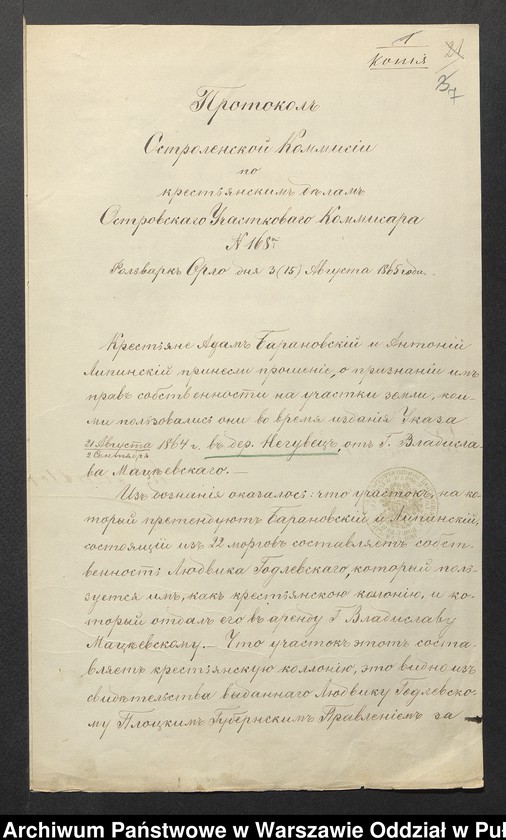 1
Копія
21
3
7
Протоколъ
Остроленской Коммисіи
по
крестьянскимъ дѣламъ
Островскаго Участковаго Коммисара
N 168
Фольваркъ Орло дня 3 (15) Августа 1865 года.
Крестьяне Адамъ Барановскій и Антоній
Липинскій принесли прошеніе, о признаніи имъ
правъ собственности на участки земли, кои-
ми пользовались они во время изданія Указа
21 Августа
2 Сентября
1864 г. въ дер. Негувецъ, отъ Г. Владисла-
ва Мацѣевскаго.—
Изъ дознанія оказалось: что участокъ, на ко-
торый претендуютъ Барановскій и Липинскій,
состоящій изъ 22 морговъ составляетъ собст-
венность Людвика Годлевскаго, который поль-
зуется имъ, какъ крестьянскою колонію, и ко-
торый отдалъ его въ аренду Г Владиславу
Мацѣевскому.— Что участокъ этотъ соста-
вляетъ крестьянскую коллонію, это видно изъ
свидѣтельства выданнаго Людвику Годлевско-
му Плоцкимъ Губернскимъ Правленіемъ за
Archiwum Państwowe w Warszawie Oddział w Puł